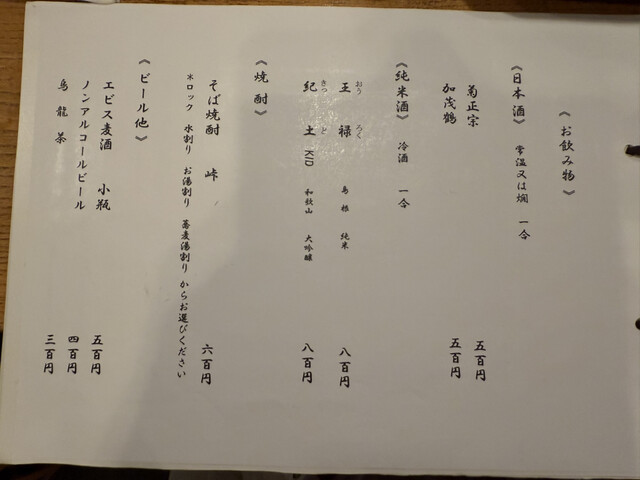 《お飲み物》
《日本酒》 常温又は燗 一合
菊正宗 五百円
加茂鶴 五百円
《純米酒》 冷酒 一合
おう ろく
王 禄 島根 純米 八百円
きっ ど
紀 土 KID 和歌山 大吟醸 八百円
《焼酎》
そば焼酎 峠 六百円
*ロック 水割り お湯割り 蕎麦湯割り からお選びください
《ビール他》
エビス麦酒 小瓶 五百円
ノンアルコールビール 四百円
烏龍茶 三百円